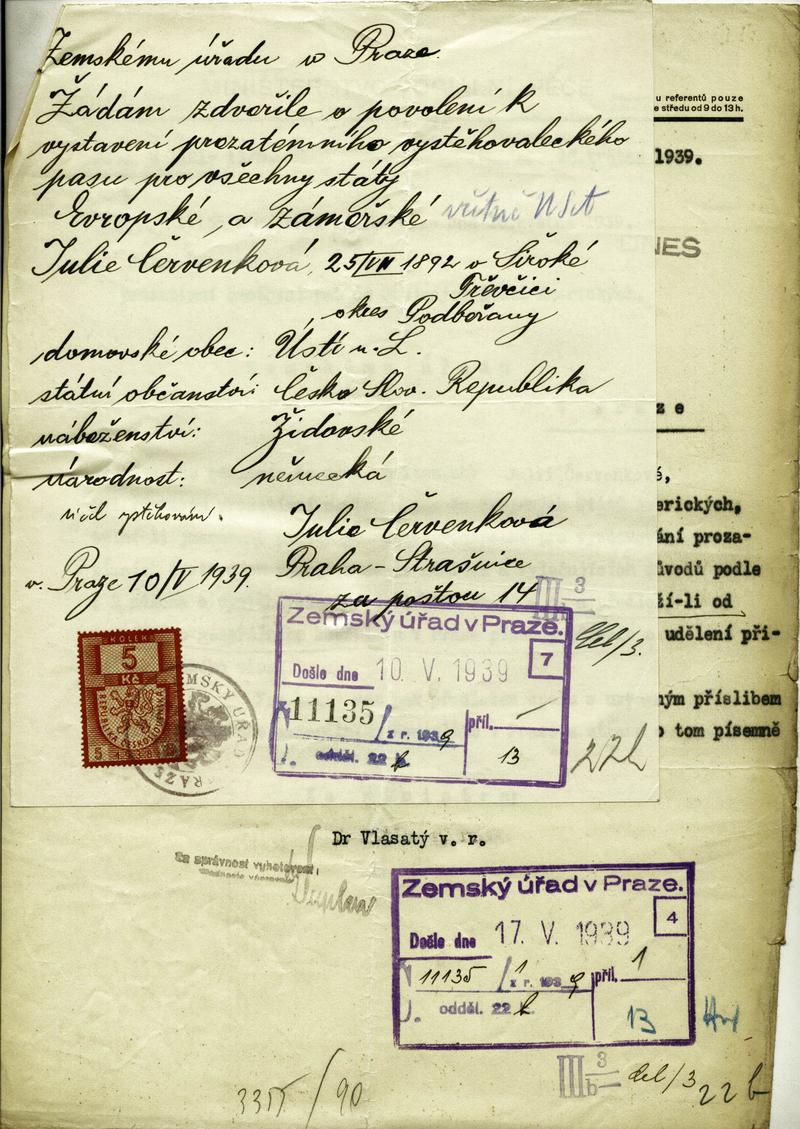 Zemskému úřadu v Praze.
Žádám zdvořile o povolení k
vystavení prozatémního vystěhovaleckého
pasu pro všechny státy
Evropské, a zámořské včítně USA
Julie Červenková, 25/VII 1892 v Široké
Třěvčici
okres Podbořany
domovské obec: Ústí n. L.
státní občanství: Česko Slov. Republika
náboženství: Židovské
národnost: německá
Julie Červenková
v. Praze 10/V 1939. Praha-Strašnice
za poštou 14
u referentů pouze
e středu od 9 do 13 h.
1939.
NES
z e
é,
erických,
ání proza-
ůvodů podle
ží-li od
udělení při-
ným příslibem
o tom písemně
KOLEK
5
Kč
REPUBLIKA ČESKOSLOVENSKÁ
ZEMSKÝ ÚŘAD
PRAZE
III 3
Zemský úřad v Praze.
7
Došlo dne 10. V. 1939
11135 / z r. 1939 příl. —
odděl. 22 b 13
22b
Dr Vlasatý v. r.
Za správnost vyhotovení:
Zemský úřad v Praze.
4
Došlo dne 17. V. 1939
11135 / 1 z r. 1939 příl. 1
odděl. 22 b 13
III 3 b del/3
22 b
335 / 90